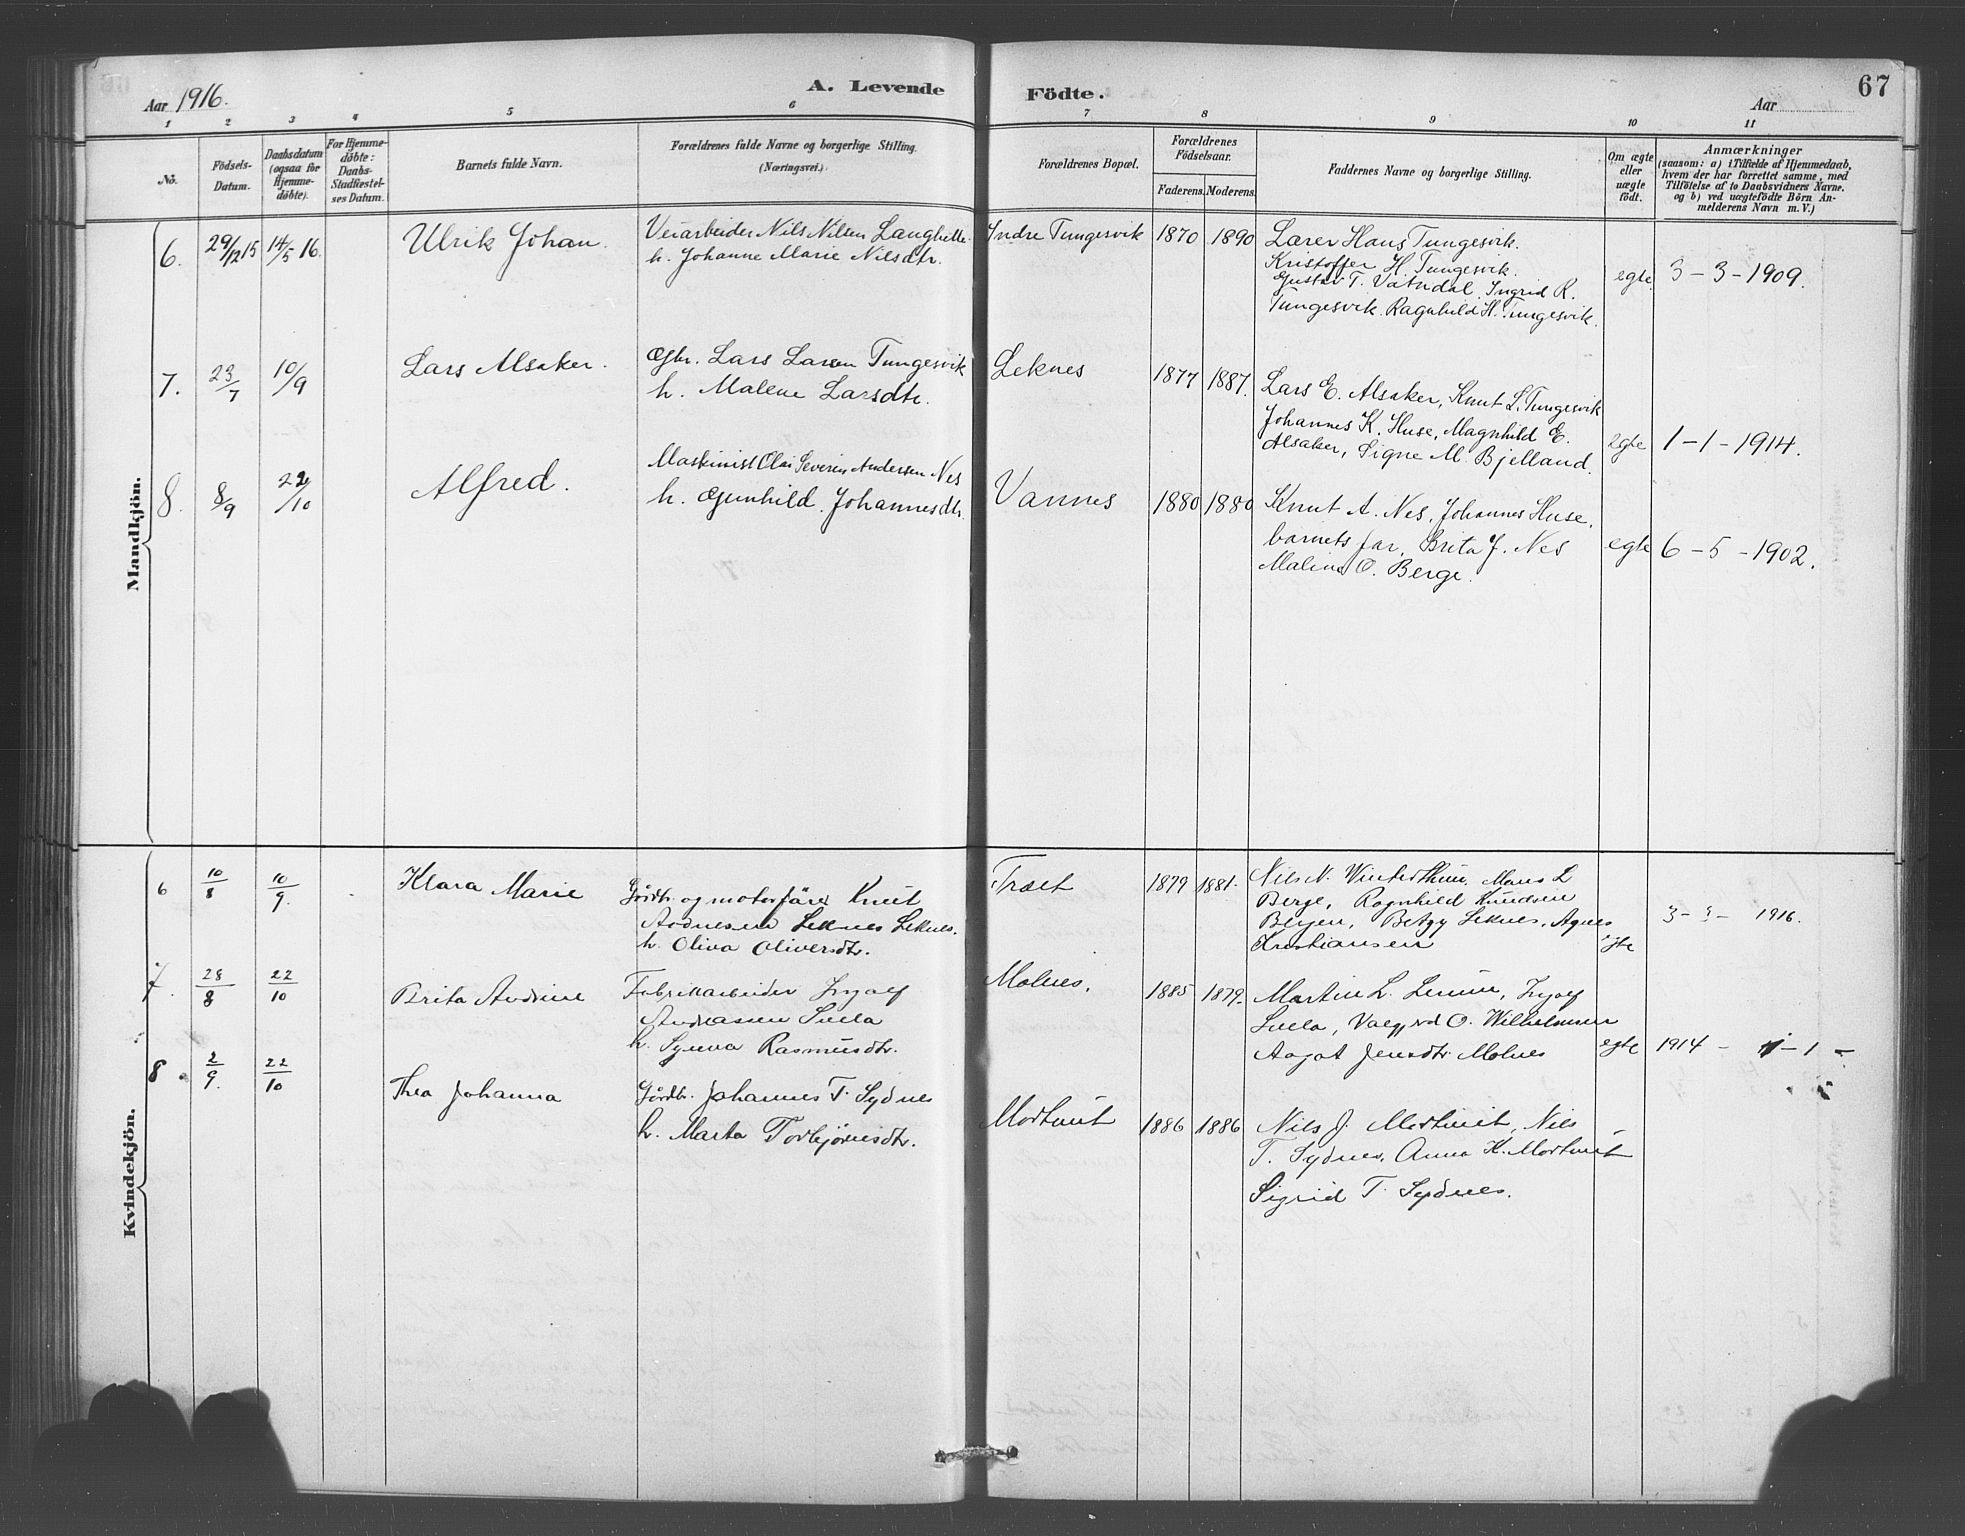 67
Aar 1916.
A. Levende Födte.
Aar
1 2 3 4 5 6 7 8 9 10 11
No.
Födsels-Datum.
Daabsdatum (ogsaa for Hjemmedöbte).
For Hjemmedöbte: Daabs-Stadfæstelses Datum.
Barnets fulde Navn.
Forældrenes fulde Navne og borgerlige Stilling. (Næringsvei.)
Forældrenes Bopæl.
Forældrenes Födselsaar.
Faderens. Moderens.
Faddernes Navne og borgerlige Stilling.
Om ægte eller uægte födt.
Anmærkninger
(saasom: a) i Tilfælde af Hjemmedaab,
hvem der har forrettet samme, med
Tilföielse af to Daabsvidners Navne.
og b) ved uægtefödte Börn An-
melderens Navn m. V.)
Mandkjön.
6. 29/12 15 14/5 16. Ulrik Johan.
Nils Nilsen
h. Johanne Marie Nilsdtr.
Indre Tungesvik 1870 1890
Lærer Hans Tungesvik.
Kristoffer H. Tungesvik.
Gustav T. Vatndal. Ingrid R.
Tungesvik. Ragnhild H. Tungesvik.
egte. 3-3-1909.
7. 23/7 10/9 Lars Alsaker.
Gbr. Lars Larsen Tungesvik
h. Malene Larsdtr.
Leknes 1877 1887.
Lars E. Alsaker, Knut L. Tungesvik
Johannes K. Huse, Magnhild E.
Alsaker, Signe M. Bjelland.
egte 1-1-1914.
8. 8/9 22/10 Alfred.
Maskinist Olai Severin Andersen Nes
h. Gunhild Johannesdtr.
Vannes 1880 1880
Knut A. Nes, Johannes Huse,
barnets far, Brita J. Nes
Malina O. Berge.
egte 6-5-1902.
Kvindekjön.
6 10/8 10/9. Klara Marie
Gårdbr. og motorfører Knut
Leknes Leknes.
h. Oliva Oliversdtr.
Træet 1879 1881.
Nils N. Winterthun, Mons L
Berge, Ragnhild Knudsen
Bergen, Betzy Leknes, Agnes
Kristiansen
egte 3-3- 1916.
7. 28/8 22/10 Brita Andrine
Fabrikarbeider Ingolf
Andreassen
h. Synva Rasmusdtr.
Molnes. 1885 1879.
Martin L. Ingolf
O. Wilhelmsen
Aagot Jensdtr. Molnes
egte 1914 - 1-1-
8. 2/9. 22/10 Thea Johanna
Gårdbr. Johannes T. Sydnes
h. Marta Torbjørnsdtr.
Mortveit 1886 1886
Nils J. Mortveit, Nils
T. Sydnes, Anna K. Mortveit
Sigrid T. Sydnes.